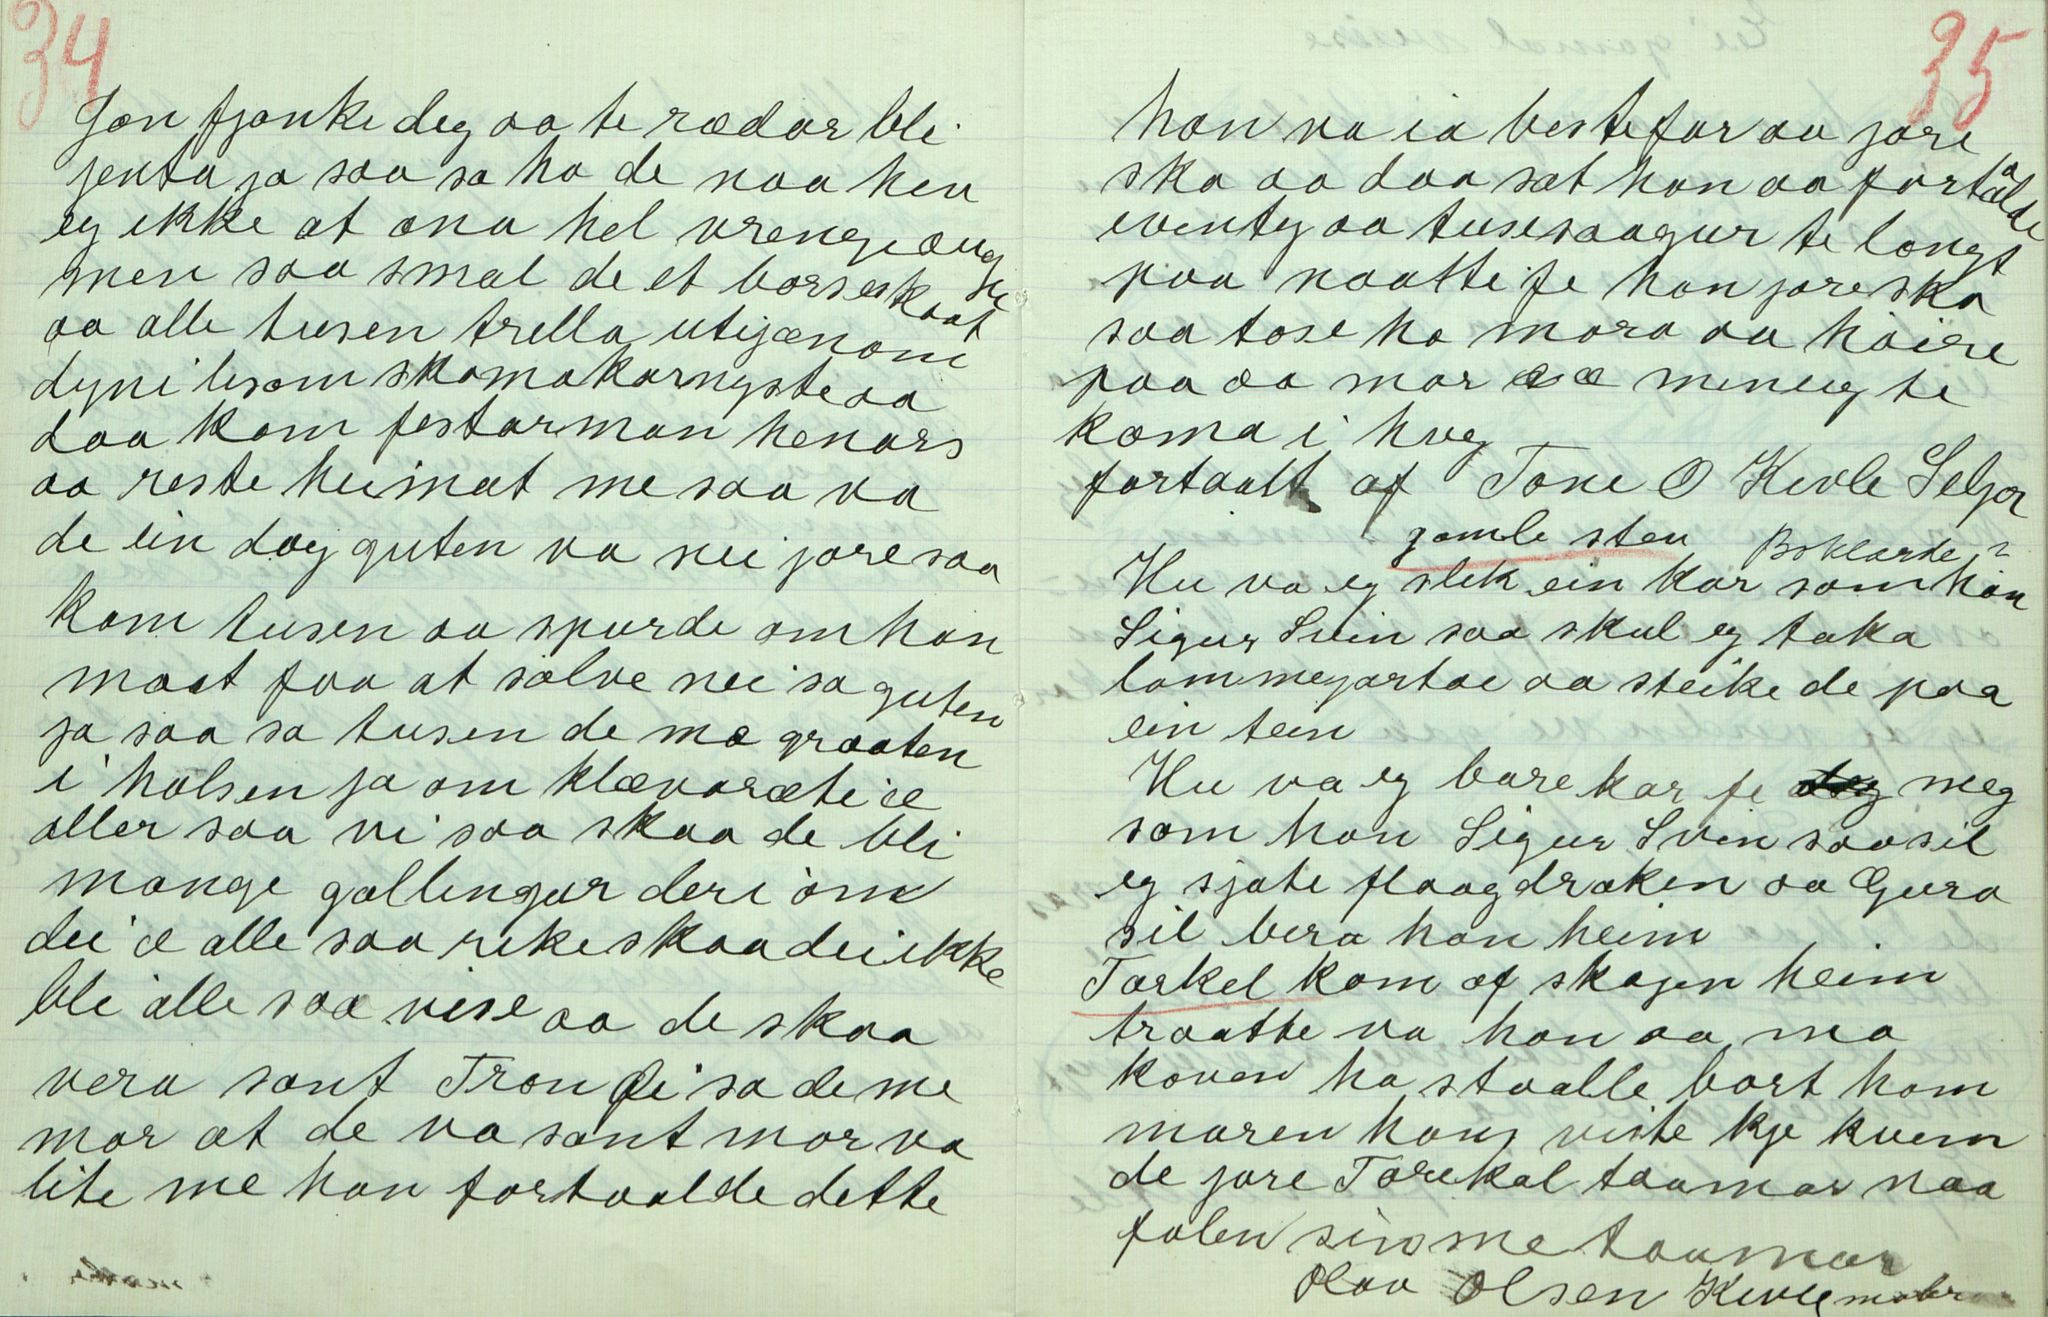 34
Jøn fjonke deg aa te rædar bli
jenta ja saa sa ho de naa hen
eg ikke at ana hel vrenge augne
men saa smal de et børseskaat
aa alle tusen trella utigjænom
dyni lisom skomakarnyste aa
daa kom festarman henars
aa reste heimat me saa va
de ein dag guten va nei jore saa
kom tusen aa spurde om han
maat faa at sølve nei sa guten
ja saa sa tusen de mæ graaten
i halsen ja om klævaræte æ
aller saa vi saa skaa de bli
mange gallingar deri om
dei æ alle saa rike skaa dei ikke
bli alle saa vise aa de skaa
vera sant Tron sa de me
mor at de va sant mor va
lite me han fortaalde dette
35
han va ia bestefar aa jore
ska aa daa sæt han aa fortælde
eventy aa tusesaagur te longt
paa naatte fe han jore ska
saa tose ho mora aa høire
paa aa mor æ mineug te
koma i hug
fortaalt af Tone O Kivle Seljor
gamle sten Bøklarde?
Hu va eg slik ein kar som han
Sigur Svin saa skul eg taka
lommegortæ aa steike de paa
ein tein
Hu va eg bare kar fe meg
som han Sigur Svin saa sil
eg sjote flaagdraken aa Gura
sil bera han heim
Torkel kom af skogen heim
traatte va han aa mo
konen ha staalle bort hom
maren hans viste kje kvem
de jore Torekal taamar naa
folen sin me taumar
Olav Olsen Kivle